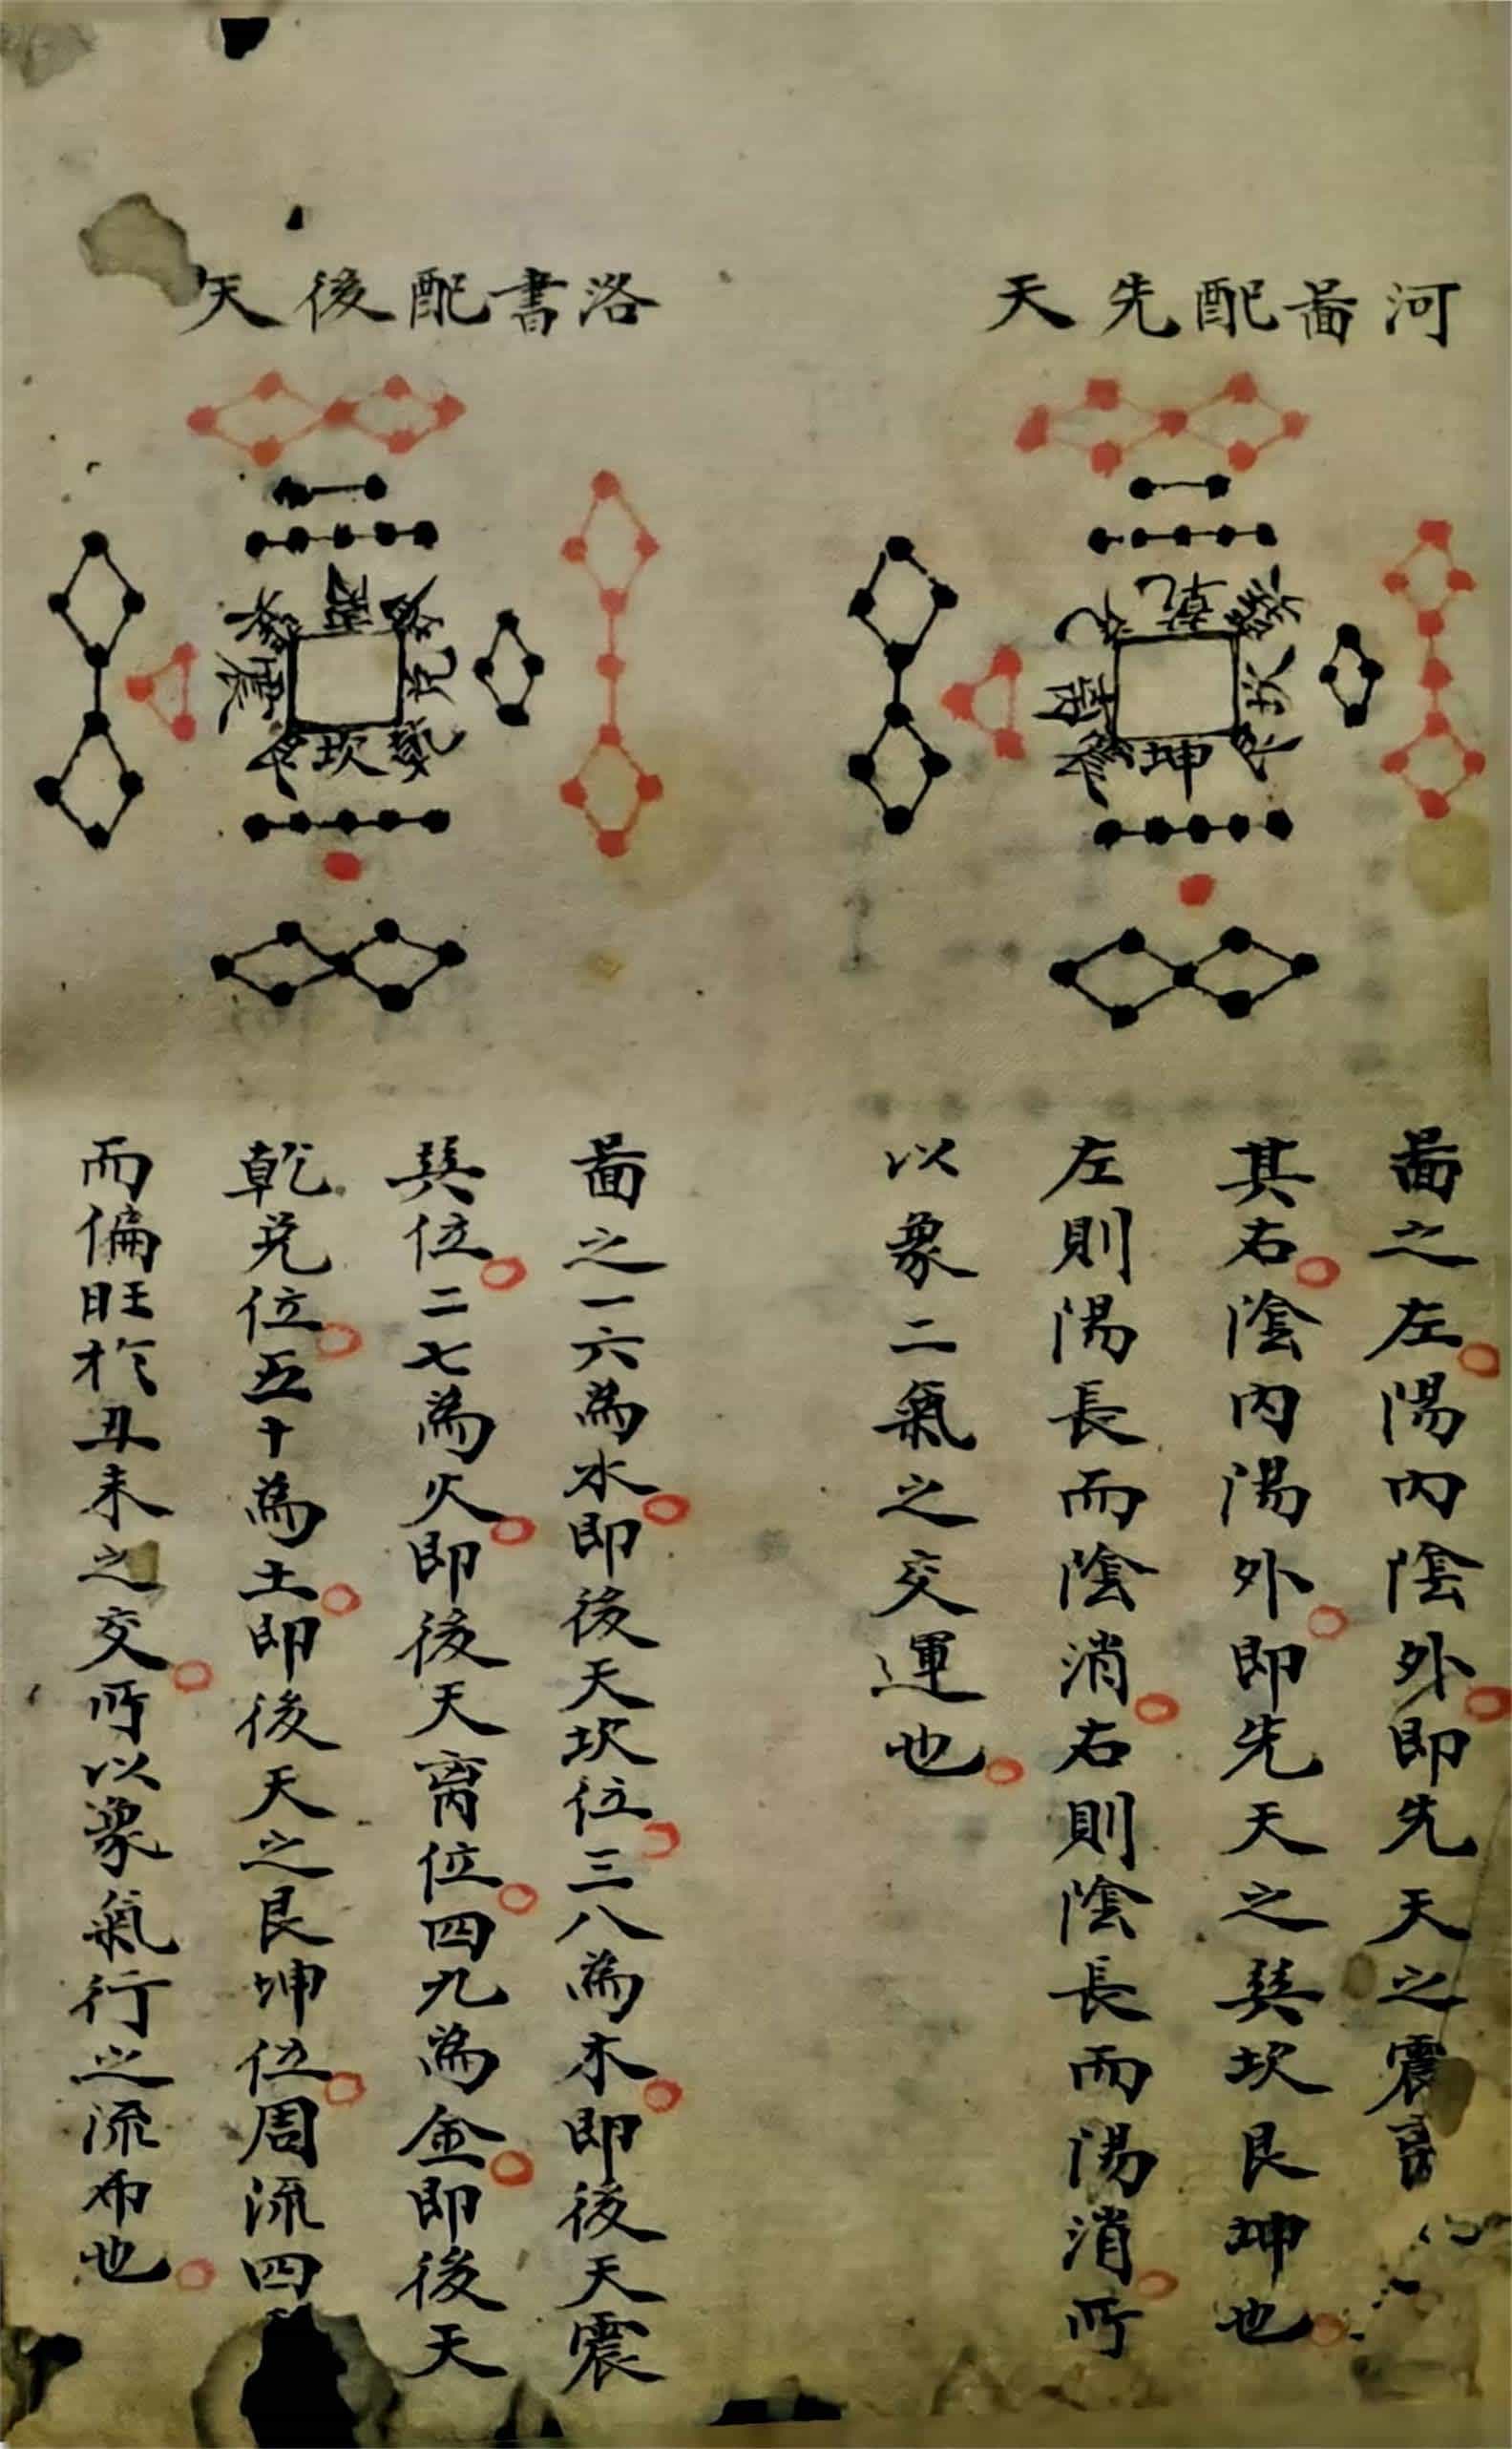 河啚配先天
乾
巽
兌
坎
离
艮
坤
震
啚之左陽內陰外即先天之震离
其右陰內陽外即先天之巽坎艮坤也
左則陽長而陰消右則陰長而陽消所
以象二氣之交運也
洛書配後天
离
坤
巽
兌
震
乾
坎
艮
啚之一六為水即後天坎位三八為木即後天震
巽位二七為火即後天离位四九為金即後天
乾兌位五十為土即後天之艮坤位周流四
而偏旺於丑未之交所以象氣行之流布也